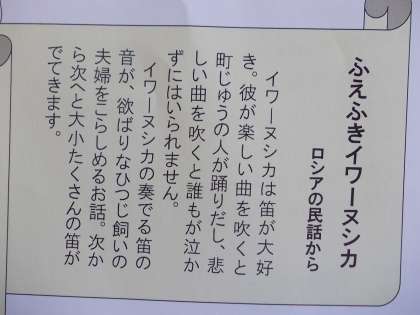 ふえふきイワーヌシカ
ロシアの民話から
イワーヌシカは笛が大好
き。彼が楽しい曲を吹くと
町じゅうの人が踊りだし、悲
しい曲を吹くと誰もが泣か
ずにはいられません。
イワーヌシカの奏でる笛の
音が、欲ばりなひつじ飼いの
夫婦をこらしめるお話。次か
ら次へと大小たくさんの笛が
でてきます。